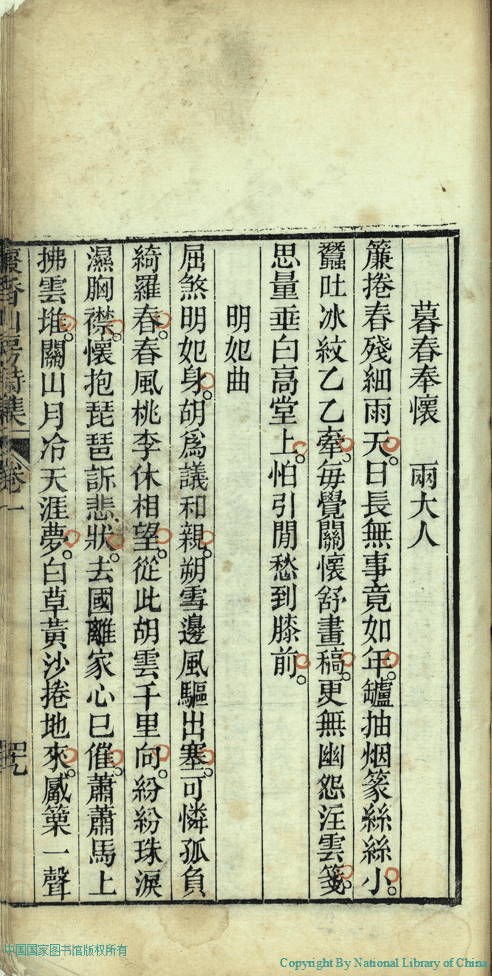 暮春奉懷　兩大人
簾捲春殘細雨天。日長無事竟如年。鑪抽烟篆絲絲小。
蠶吐冰紋乙乙牽。每覺關懷舒畫稿。更無幽怨注雲箋。
思量垂白高堂上。怕引閒愁到膝前。
明妃曲
屈煞明妃身。胡爲議和親。朔雪邊風驅出塞。可憐孤負
綺羅春。春風桃李休相望。從此胡雲千里向。紛紛珠淚
濕胸襟。懷抱琵琶訴悲狀。去國離家心已催。蕭蕭馬上
拂雲堆。關山月冷天涯夢。白草黃沙捲地來。觱篥一聲
香山房詩集 卷一
中国国家图书馆版权所有
Copyright By National Library of China